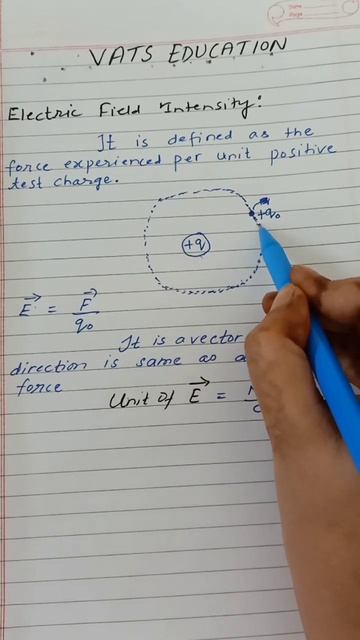 Date
Page
VATS EDUCATION
Electric Field Intensity:
It is defined as the
force experienced per unit positive
test charge.
+q₀
+q
E⃗ = F⃗/q₀
It is a vector
direction is same as
force
Unit of E⃗ =